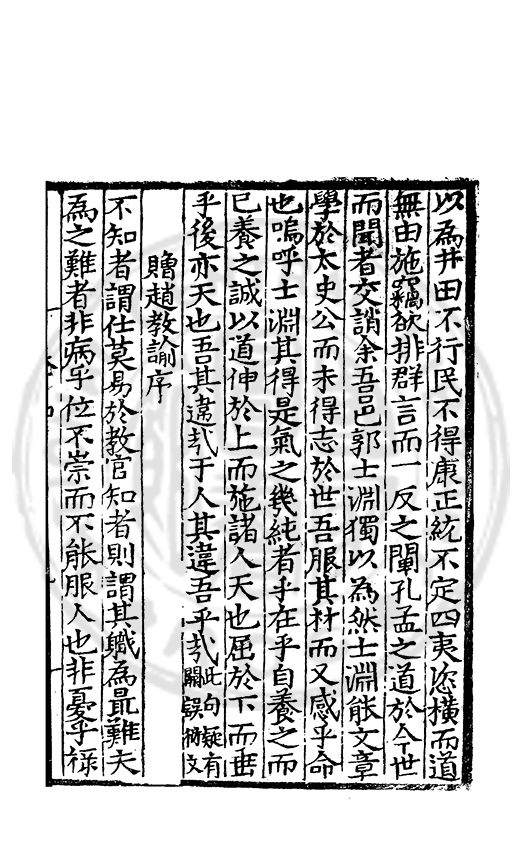 以為井田不行民不得康正統不定四夷恣橫而道
無由施竊欲排群言而一反之闡孔孟之道於今世
而聞者交誚余吾邑郭士淵獨以為然士淵能文章
學於太史公而未得志於世吾服其材而又感乎命
也嗚呼士淵其得是氣之幾純者乎在乎自養之而
已養之誠以道伸於上而施諸人天也屈於下而垂
乎後亦天也吾其違㢤于人其違吾乎㢤此句疑有闕誤衍文
贈趙教諭序
不知者謂仕莫易於教官知者則謂其職為最難夫
為之難者非病乎位不崇而不能服人也非憂乎祿